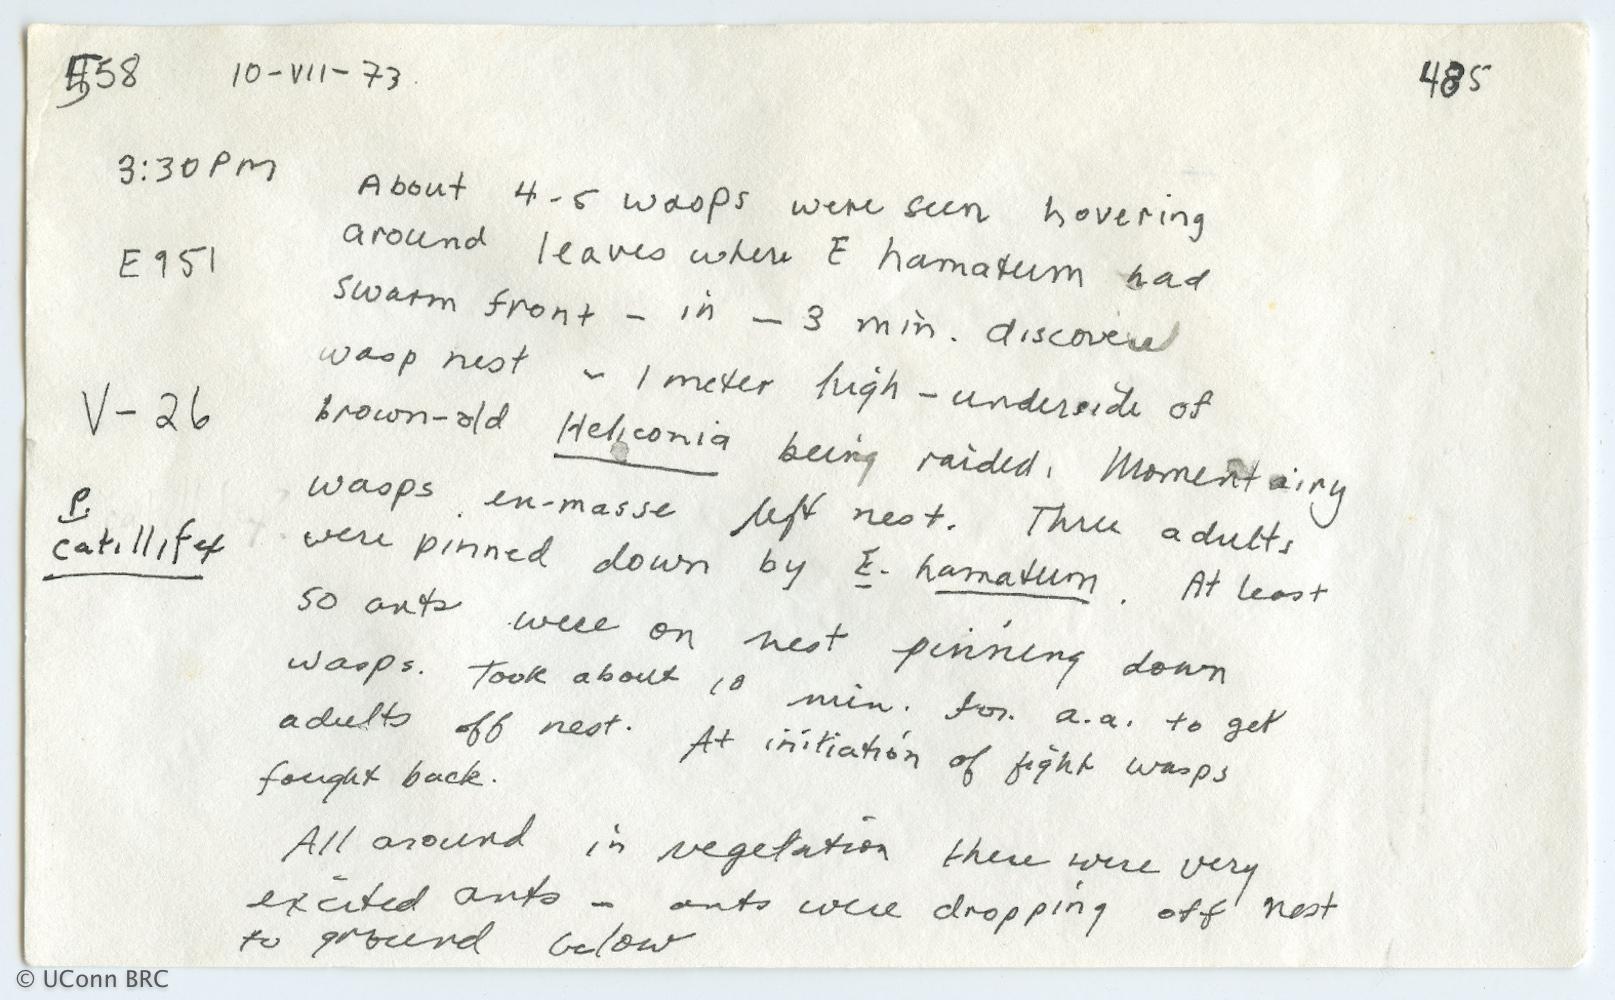 558 10-VII-73 485
3:30PM
About 4-5 wasps were seen hovering
around leaves where E hamatum had
E951
swarm front - in - 3 min. discovered
wasp nest ~ 1 meter high - underside of
V-26
brown-old Heliconia being raided. Momentairy
wasps en-masse left nest. Three adults
P.
catillifex
were pinned down by E. hamatum. At least
50 ants were on nest pinning down
wasps. Took about 10 min. for a.a. to get
adults off nest. At initiation of fight wasps
fought back.
All around in vegetation there were very
excited ants - ants were dropping off nest
to ground below
© UConn BRC